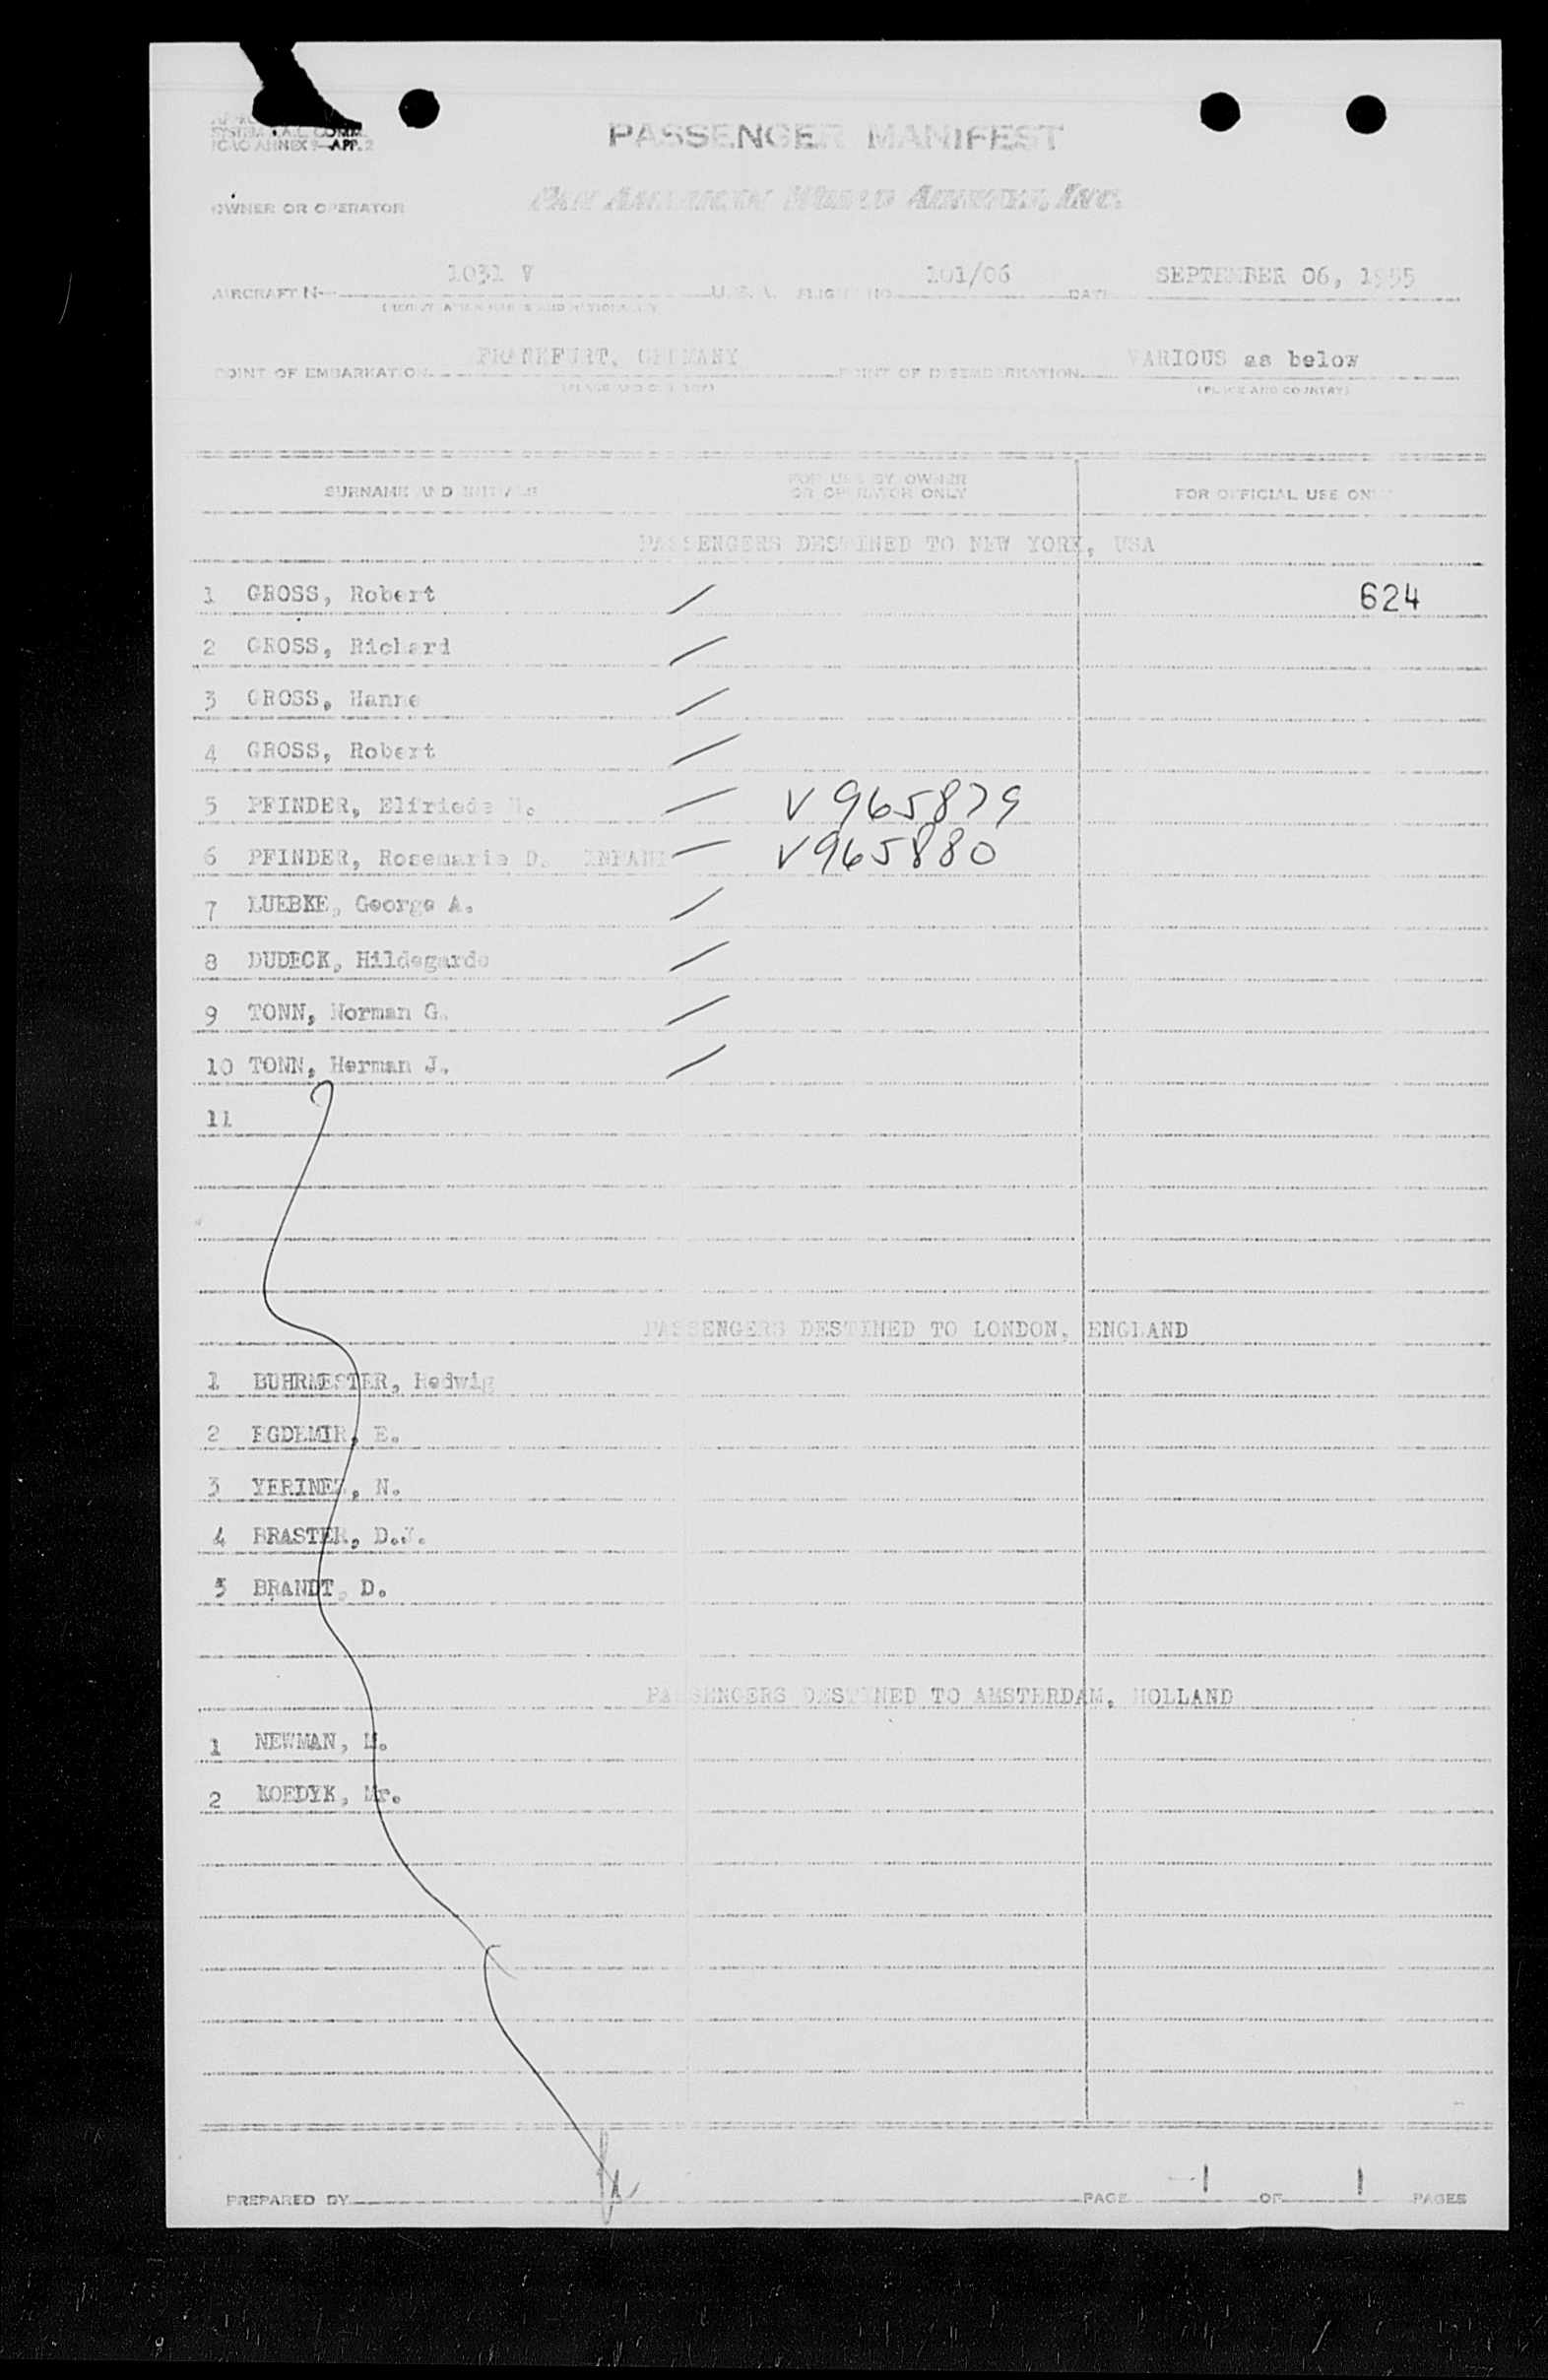 SYSTEM A.L. COMM.
ICAO ANNEX 9—APP. 2
PASSENGER MANIFEST
OWNER OR OPERATOR PAN AMERICAN WORLD AIRWAYS, INC.
AIRCRAFT N— 1031 V U.S.A. FLIGHT NO. 101/06 DATE SEPTEMBER 06, 1955
POINT OF EMBARKATION FRANKFURT, GERMANY POINT OF DISEMBARKATION VARIOUS as below
(PLACE AND COUNTRY) (PLACE AND COUNTRY)
SURNAME AND INITIALS FOR USE BY OWNER OR OPERATOR ONLY FOR OFFICIAL USE ONLY
PASSENGERS DESTINED TO NEW YORK, USA
1 GROSS, Robert 624
2 GROSS, Richard
3 GROSS, Hanne
4 GROSS, Robert
5 PFINDER, Elfriede V965879
6 PFINDER, Rosemarie D. INFANT V965880
7 LUEBKE, George A.
8 DUDECK, Hildegarde
9 TONN, Norman G.
10 TONN, Herman J.
11
PASSENGERS DESTINED TO LONDON, ENGLAND
1 BUHRMESTER, Hedwig
2 EGDEMIR, E.
3 YERINEZ, N.
4 BRASTER, D.J.
5 BRANDT, D.
PASSENGERS DESTINED TO AMSTERDAM, HOLLAND
1 NEWMAN, M.
2 KOEDYK, Mr.
PREPARED BY PAGE 1 OF 1 PAGES